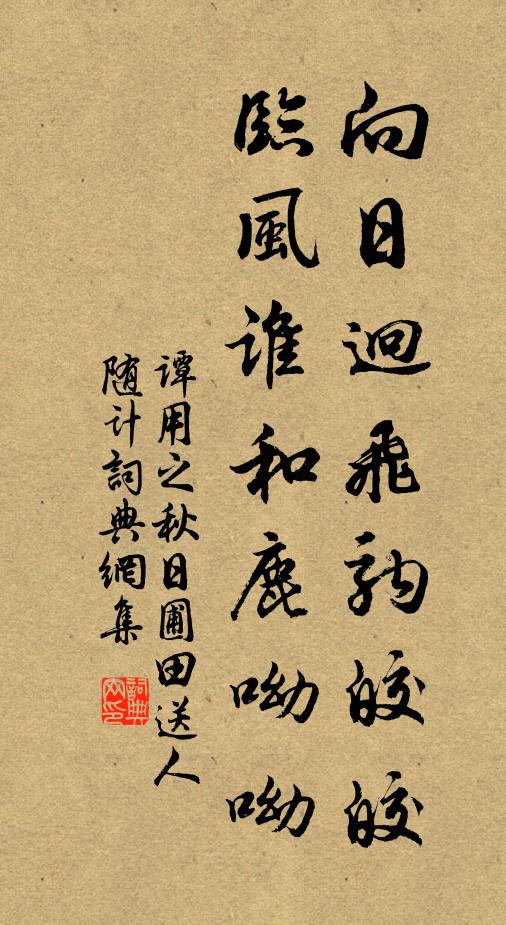 向日迥飛駒皎皎
臨風誰和鹿呦呦
譚用之秋日圃田送人
随計詞典網集
詞典
网印